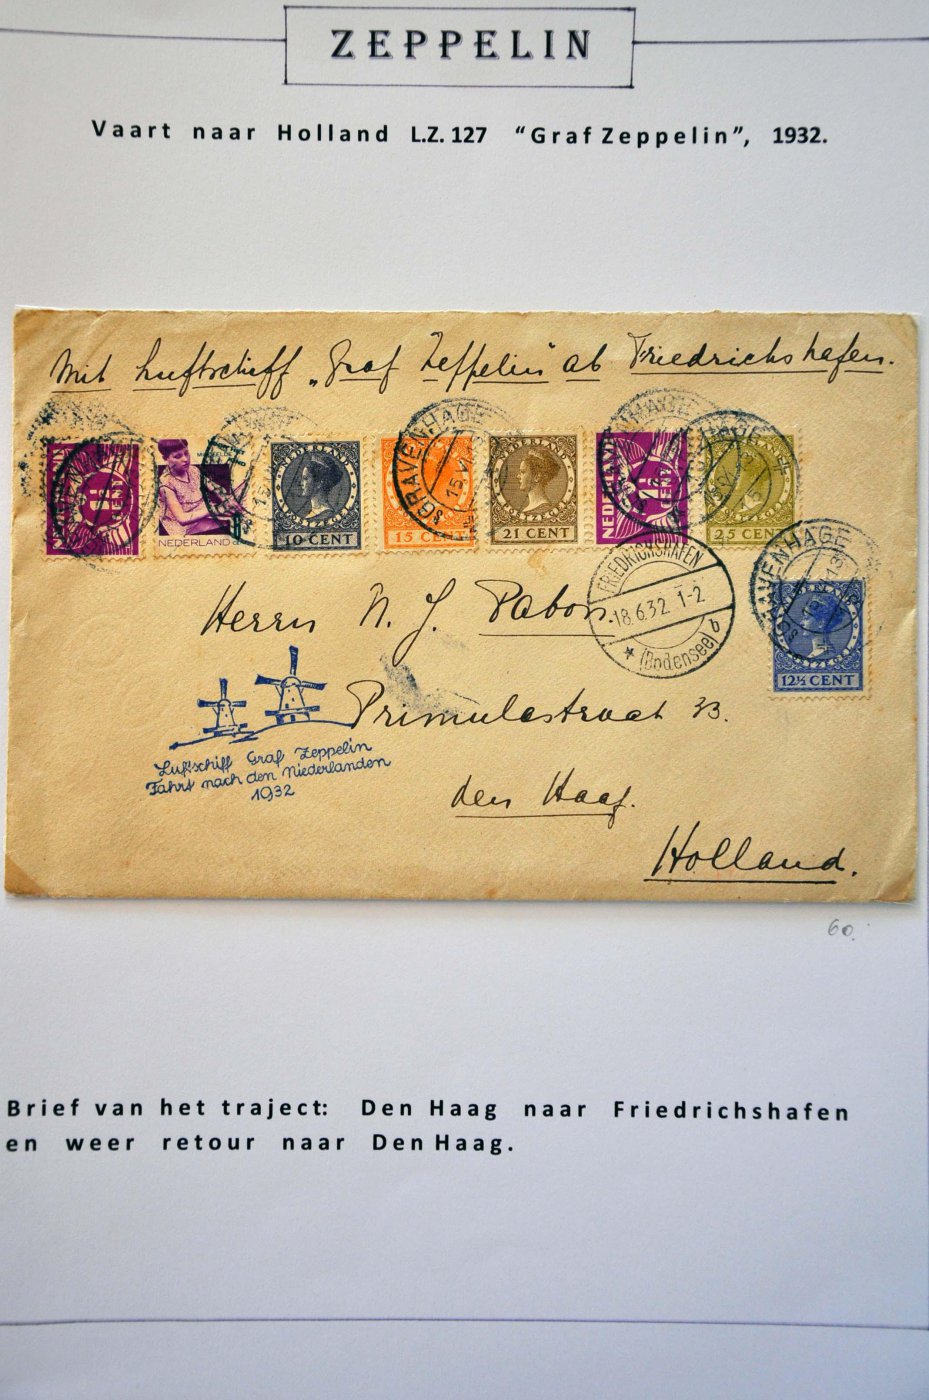 ZEPPELIN
Vaart naar Holland L.Z. 127 “Graf Zeppelin”, 1932.
Mit Luftschiff „Graf Zeppelin“ ab Friedrichshafen.
NEDERLAND
NEDERLAND
10 CENT
NEDERLAND
15 CENT
NEDERLAND
21 CENT
NEDERLAND
NEDERLAND
25 CENT
'SGRAVENHAGE
'SGRAVENHAGE
12½ CENT
FRIEDRICHSHAFEN
18.6.32 1-2
* (Bodensee) b
Herrn N. J. Pabon.
Primulastraat 33.
den Haag.
Holland.
Luftschiff Graf Zeppelin
Fahrt nach den Niederlanden
1932
60.
Brief van het traject: Den Haag naar Friedrichshafen
en weer retour naar Den Haag.